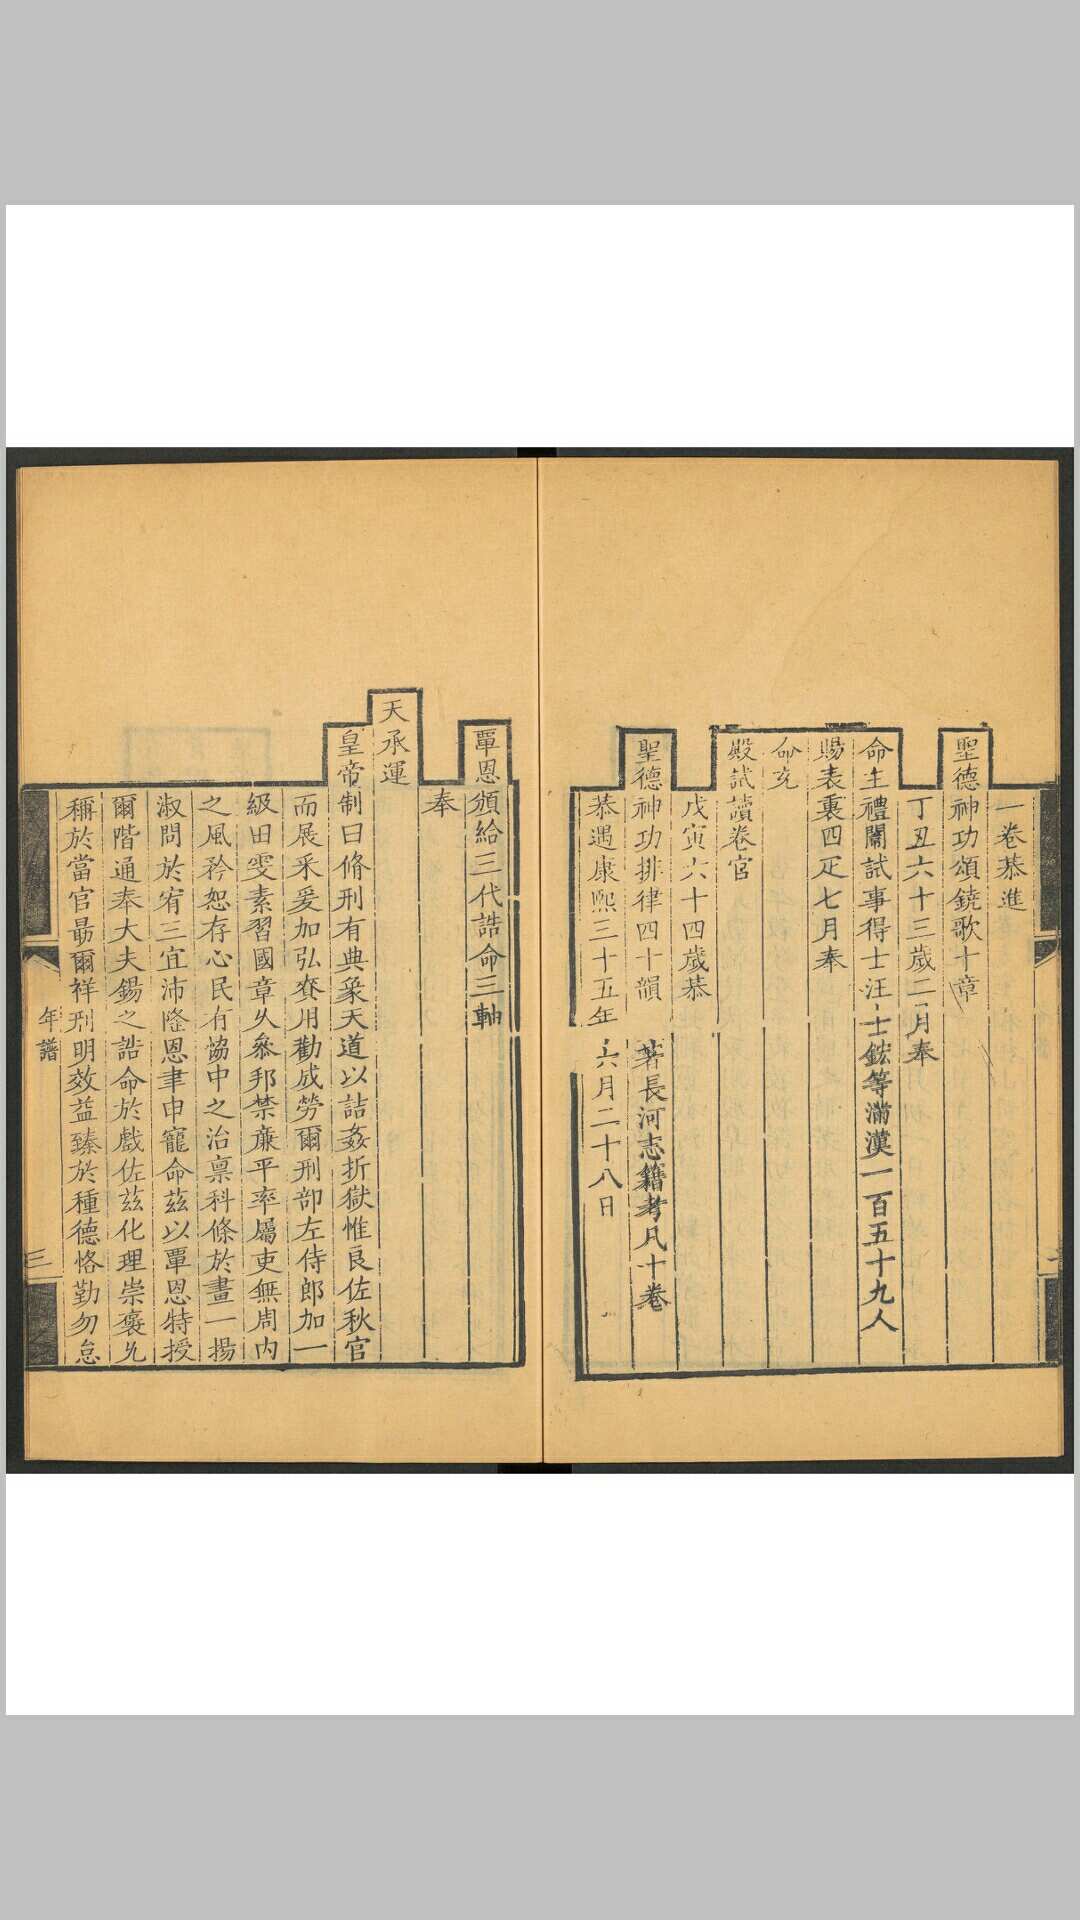 一卷恭進
聖德神功頌鐃歌十章
丁丑六十三歲二月奉
命主禮闈試事得士汪士鋐等滿漢一百五十九人
賜表裏四疋七月奉
命充
殿試讀卷官
戊寅六十四歲恭
聖德神功排律四十韻 著長河志籍考凡十卷
恭遇康熙三十五年六月二十八日
覃恩頒給三代誥命三軸
奉
天承運
皇帝制曰脩刑有典象天道以詰姦折獄惟良佐秋官
而展采爰加弘賚用勸成勞爾刑部左侍郎加一
級田雯素習國章久叅邦禁亷平率屬吏無周内
之風矜恕存心民有協中之治稟科條於畫一揚
淑問於宥三宜沛隆恩聿申寵命茲以覃恩特授
爾階通奉大夫錫之誥命於戲佐茲化理崇襃允
稱於當官朂爾祥刑明效益臻於種德恪勤勿怠
年譜
三